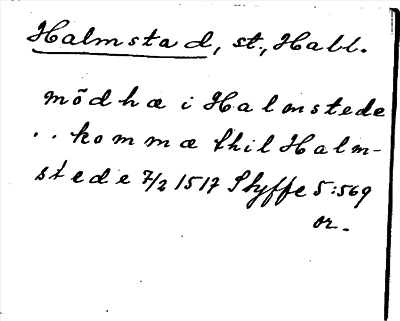 Halmstad, st., Hall.
mödhæ i Halmstede
.. kommæ thil Halm-
stede 7/2 1517 Styffe 5:569
or.